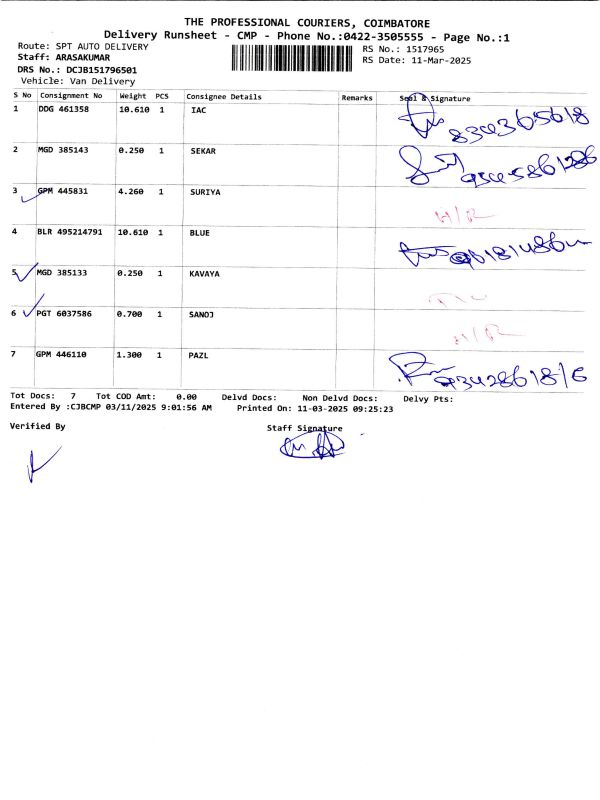 THE PROFESSIONAL COURIERS, COIMBATORE
Delivery Runsheet - CMP - Phone No.:0422-3505555 - Page No.:1
Route: SPT AUTO DELIVERY
RS No.: 1517965
Staff: ARASAKUMAR
RS Date: 11-Mar-2025
DRS No.: DCJB151796501
Vehicle: Van Delivery
S No Consignment No Weight PCS Consignee Details Remarks Seal & Signature
1 DDG 461358 10.610 1 IAC
2 MGD 385143 0.250 1 SEKAR
3 GPM 445831 4.260 1 SURIYA
4 BLR 495214791 10.610 1 BLUE
5 MGD 385133 0.250 1 KAVAYA
6 PGT 6037586 0.700 1 SANOJ
7 GPM 446110 1.300 1 PAZL
Tot Docs: 7 Tot COD Amt: 0.00 Delvd Docs: Non Delvd Docs: Delvy Pts:
Entered By :CJBCMP 03/11/2025 9:01:56 AM Printed On: 11-03-2025 09:25:23
Verified By Staff Signature